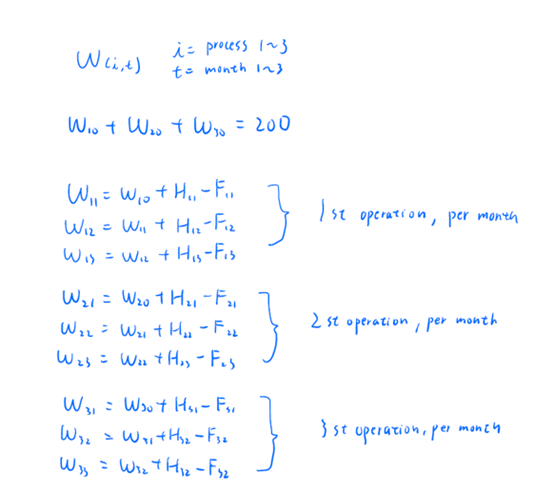 W(i,t) i = process 1~3
t = month 1~3
W₁₀ + W₂₀ + W₃₀ = 200
W₁₁ = W₁₀ + H₁₁ - F₁₁
W₁₂ = W₁₁ + H₁₂ - F₁₂
W₁₃ = W₁₂ + H₁₃ - F₁₃
1st operation, per month
W₂₁ = W₂₀ + H₂₁ - F₂₁
W₂₂ = W₂₁ + H₂₂ - F₂₂
W₂₃ = W₂₂ + H₂₃ - F₂₃
2st operation, per month
W₃₁ = W₃₀ + H₃₁ - F₃₁
W₃₂ = W₃₁ + H₃₂ - F₃₂
W₃₃ = W₃₂ + H₃₂ - F₃₂
3st operation, per month